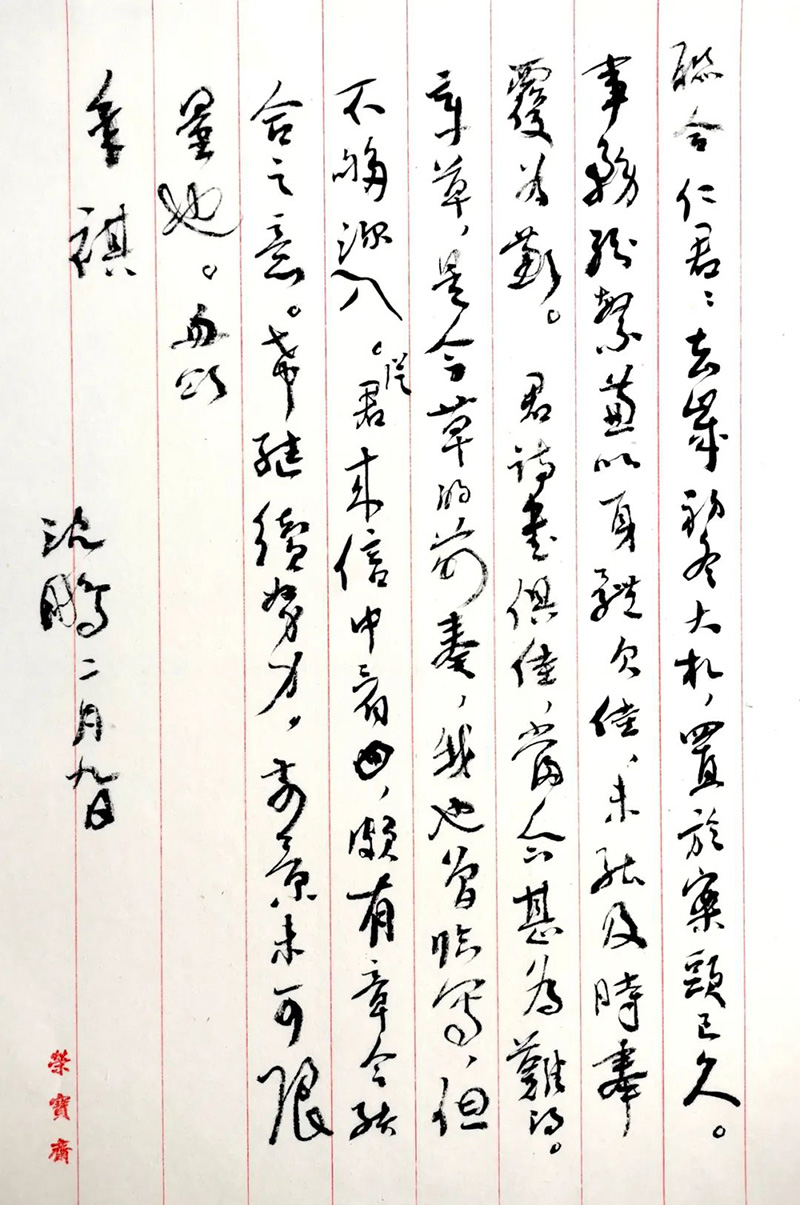 聯合仁君：去歲初冬大札，置於案頭已久。
事務紛繁兼以身體欠佳，未能及時奉
覆為歉。君詩書俱佳，當今甚為難得。
章草，是今草的前奏，我也曾臨寫，但
不夠深入。從君來信中看出，頗有章今結
合之意。希繼續努力，前景未可限
量也。
年祺
沈鵬二月九日
榮寶齋